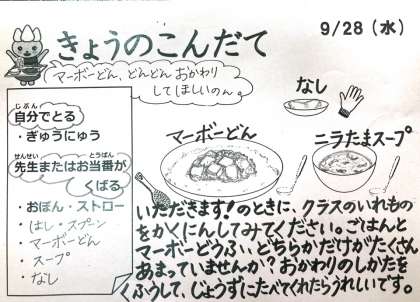 きょうのこんだて
9/28（水）
マーボーどん、どんどんおかわり
してほしいのん。
なし
マーボーどん
ニラたまスープ
じぶん
自分でとる
・ぎゅうにゅう
せんせい とうばん
先生またはお当番が
くばる
・おぼん・ストロー
・はし・スプーン
・マーボーどん
・スープ
・なし
いただきます!のときに、クラスのいれもの
をかくにんしてみてください。ごはんと
マーボーどうふ、どちらかだけがたくさん
あまっていませんか?おかわりのしかたを
くふうして、じょうずにたべてくれたらうれしいです。